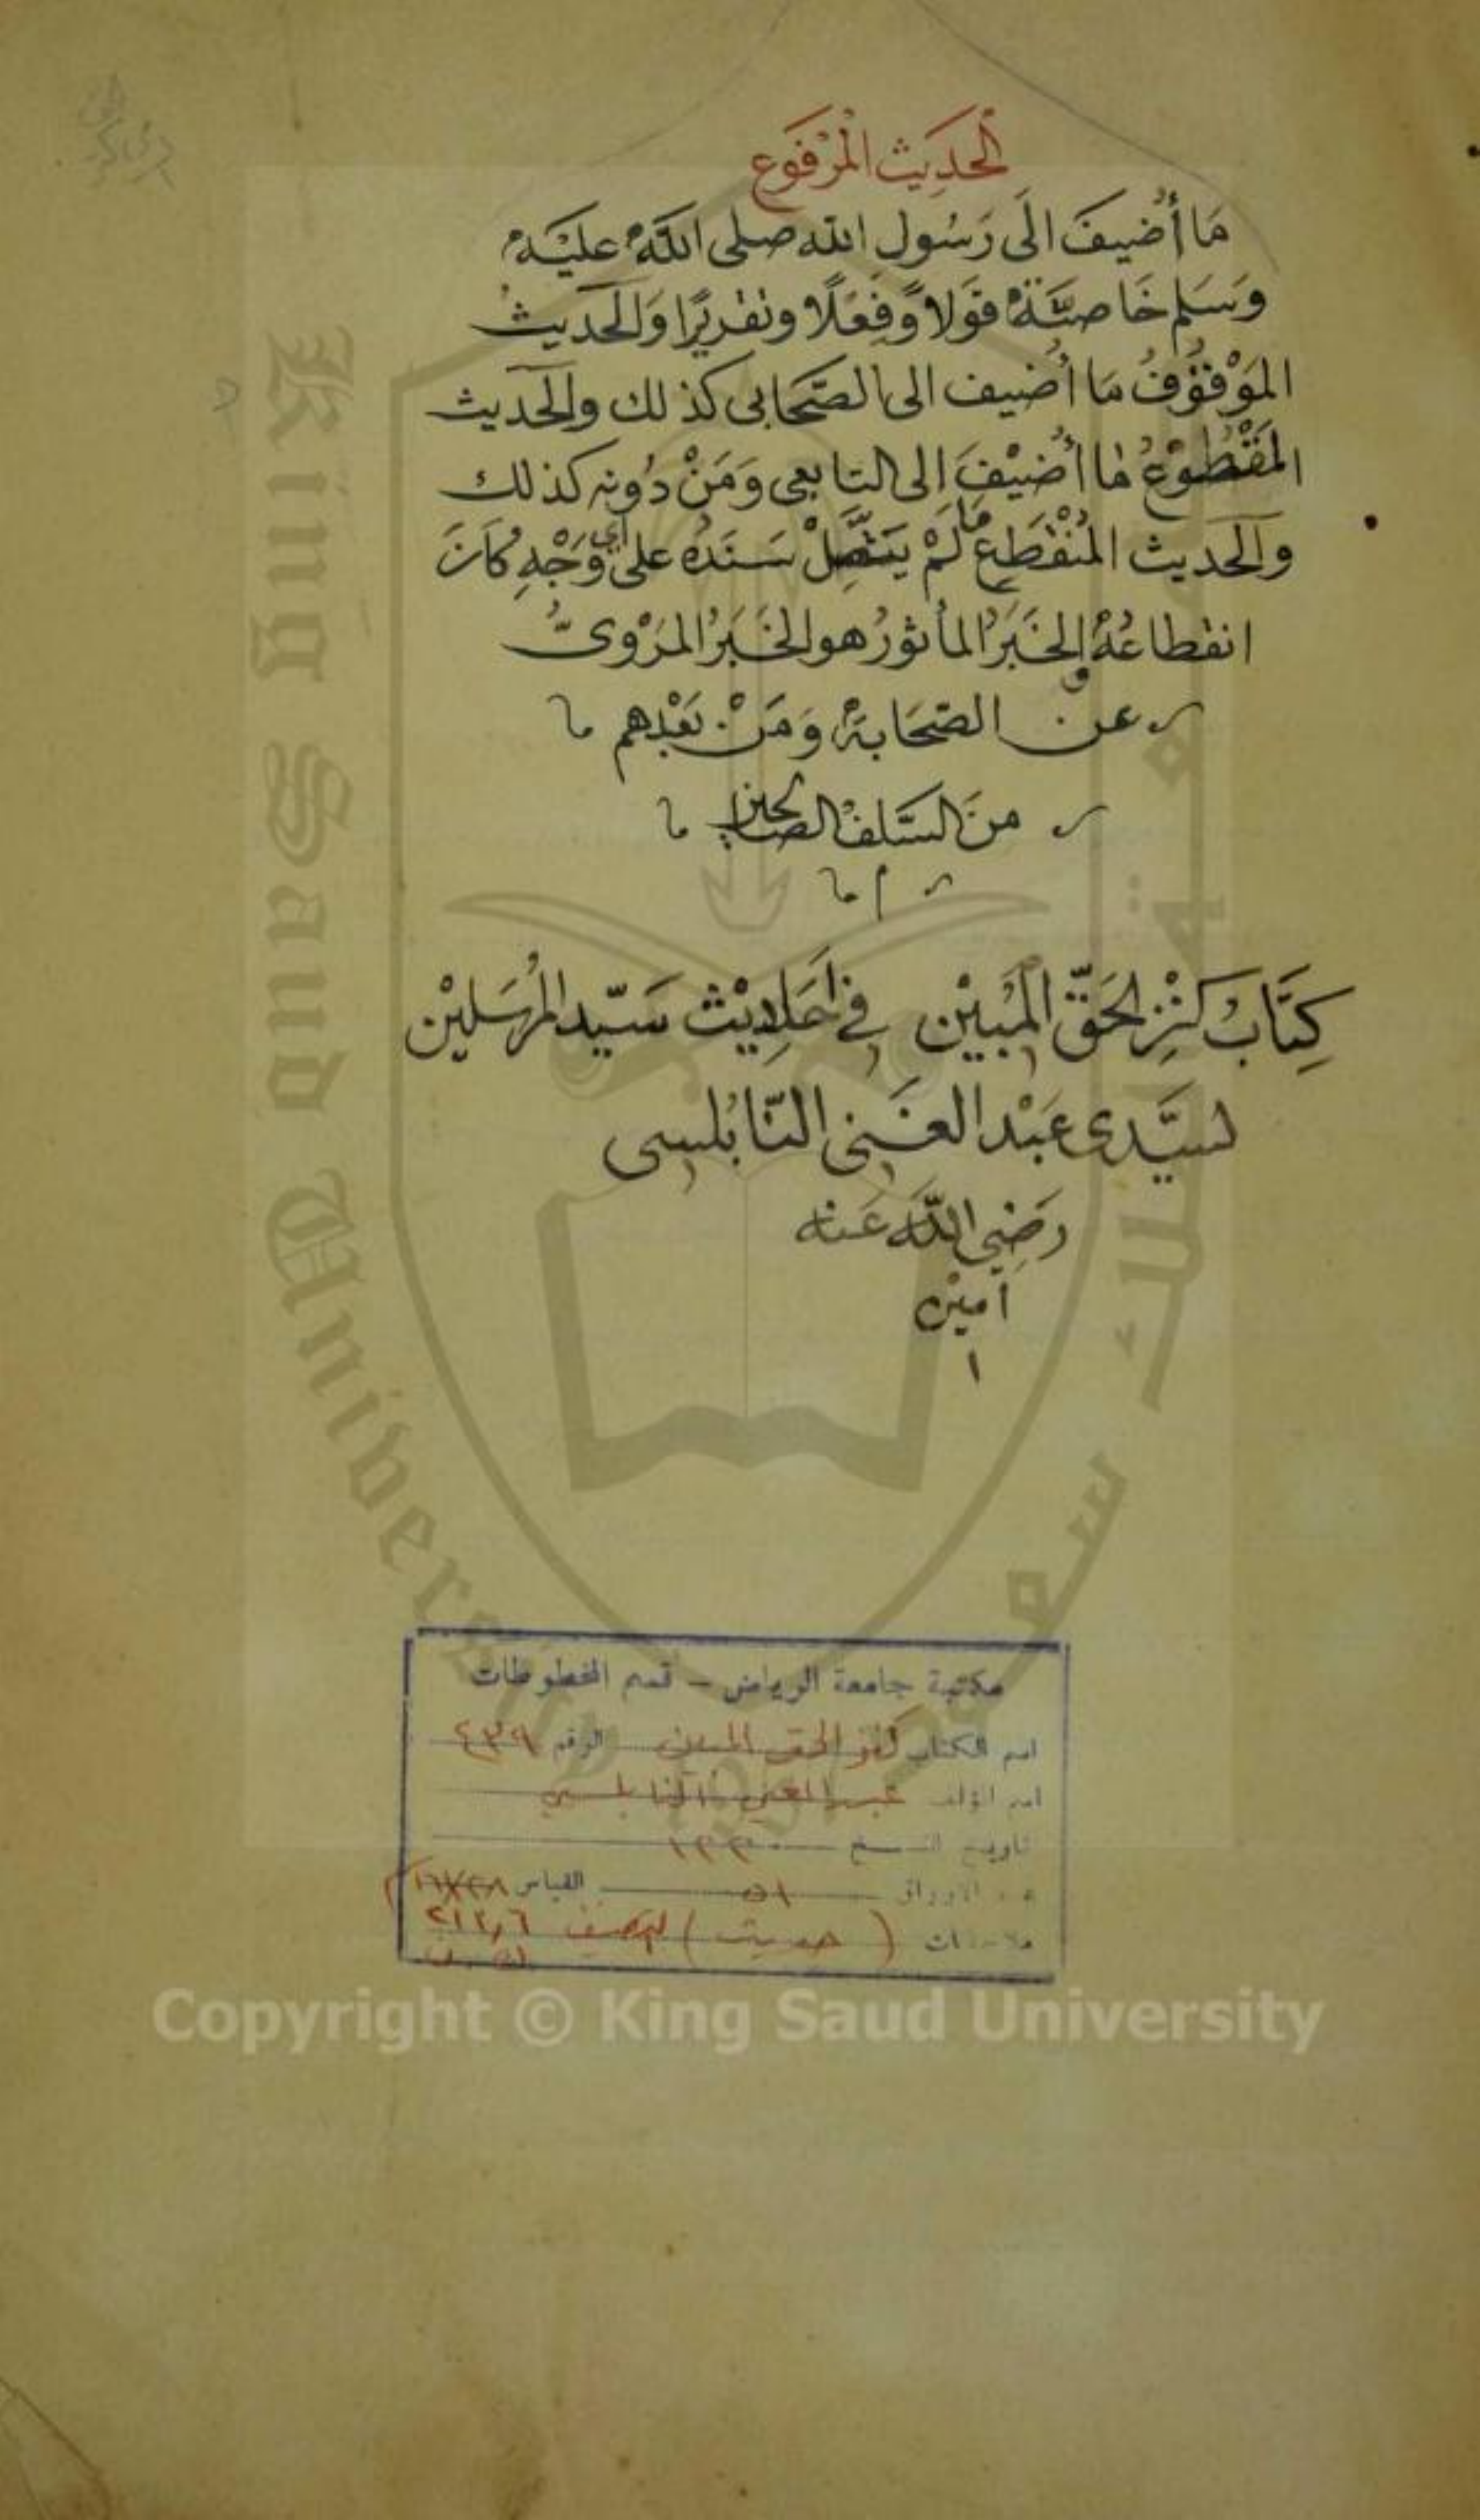 الْحَدِيث الْمَرْفَوع
مَا أُضيفَ الَى رَسُولِ الله صلى اللَّه عليَه
وَسَلم خَاصَّةً قَولاً وَفِعْلاً وتقريرًا وَالحديثُ
المَوْقوُفُ مَا أُضيف الى الصَّحَابى كذلك والحديث
المَقْطُوْعُ مَا أُضيْفَ الى التابعى وَمَنْ دُونه كذلك
والحديث المُنْقَطِع مَا لَمْ يَتَّصِلْ سَنَدُه على أي وَجْهٍ كَانَ
انقطاعُهُ والخَبَرُ المأثورُ هو الخَبَرُ المَرْوىُّ
عن الصَّحَابَة وَمَنْ بَعْدهم
منَ السَّلف الصالحين
كِتَابْ كَنْزِ الحَقّ المُبِيْن فِي أحَادِيْث سَيّد المُرْسَلِيْن
لسَيّدى عَبْد الغَنِى النَّابُلِسى
رَضِي اللَّه عَنه
امين
١
مكتبة جامعة الرياض – قسم المخطوطات
اسم الكتاب كنز الحق المبين الرقم ٤٣٩
اسم المؤلف عبد الغني النابلسي
تاريخ النسخ
عدد الاوراق ٥١ القياس
ملاحظات (حديث) التصنيف ٢١٣٫٦
King Saud University
Copyright © King Saud University